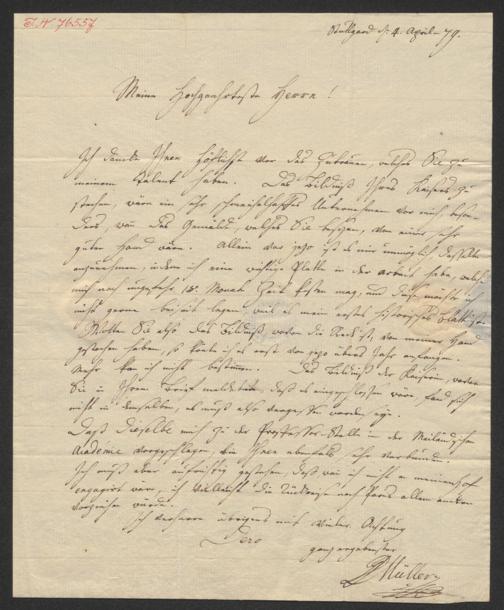 I.N 76557
Stuttgard d. 4. April-79.
Meine Hochgeehrteste Herrn!
Ich danke Ihnen höflichst vor das Zutrauen, welches Sie zu
meinem Talent haben. Das Bildniß Ihres Kaisers zu
stechen, wäre ein sehr schmeichelhaftes Unternehmen vor mich, beson-
ders, wan das Gemäld, welches Sie besizen, von einer sehr
guten Hand wäre. Allein vor jezo ist es mir unmöglich dasselbe
anzunehmen, indem ich eine wichtige Platte in der arbeit habe, welche
mich noch ungefehr 18. Monate Zeit kosten mag, und diese möchte ich
nicht gerne beiseit legen weil es mein erstes historisches Blatt ist.
Wollten Sie also das Bildniß, wovon die Rede ist, von meiner Hand
gestochen haben, so könte ich es erst von jezo übers Jahr anfangen.
Mehr kan ich nicht bestimen. Das Bildniß der Kaiserin, wovon
Sie in Ihrem Brief meldeten, daß es eingeschlossen wäre, fand sich
nicht in demselben, es muß also vergessen worden seyn.
Daß Dieselbe mich zu der Professor-Stelle in der Meiländischen
Academie vorgeschlagen, bin Ihnen ebenfals sehr verbunden.
Ich muß aber aufrichtig gestehen, daß wan ich nicht an meinen Hof
engagirt wäre, ich vielleicht die Rükreise nach Paris allem andern
vorziehen würde.
Ich verharre übrigens mit vieler Achtung
Dero
ganz ergebenster
Müller